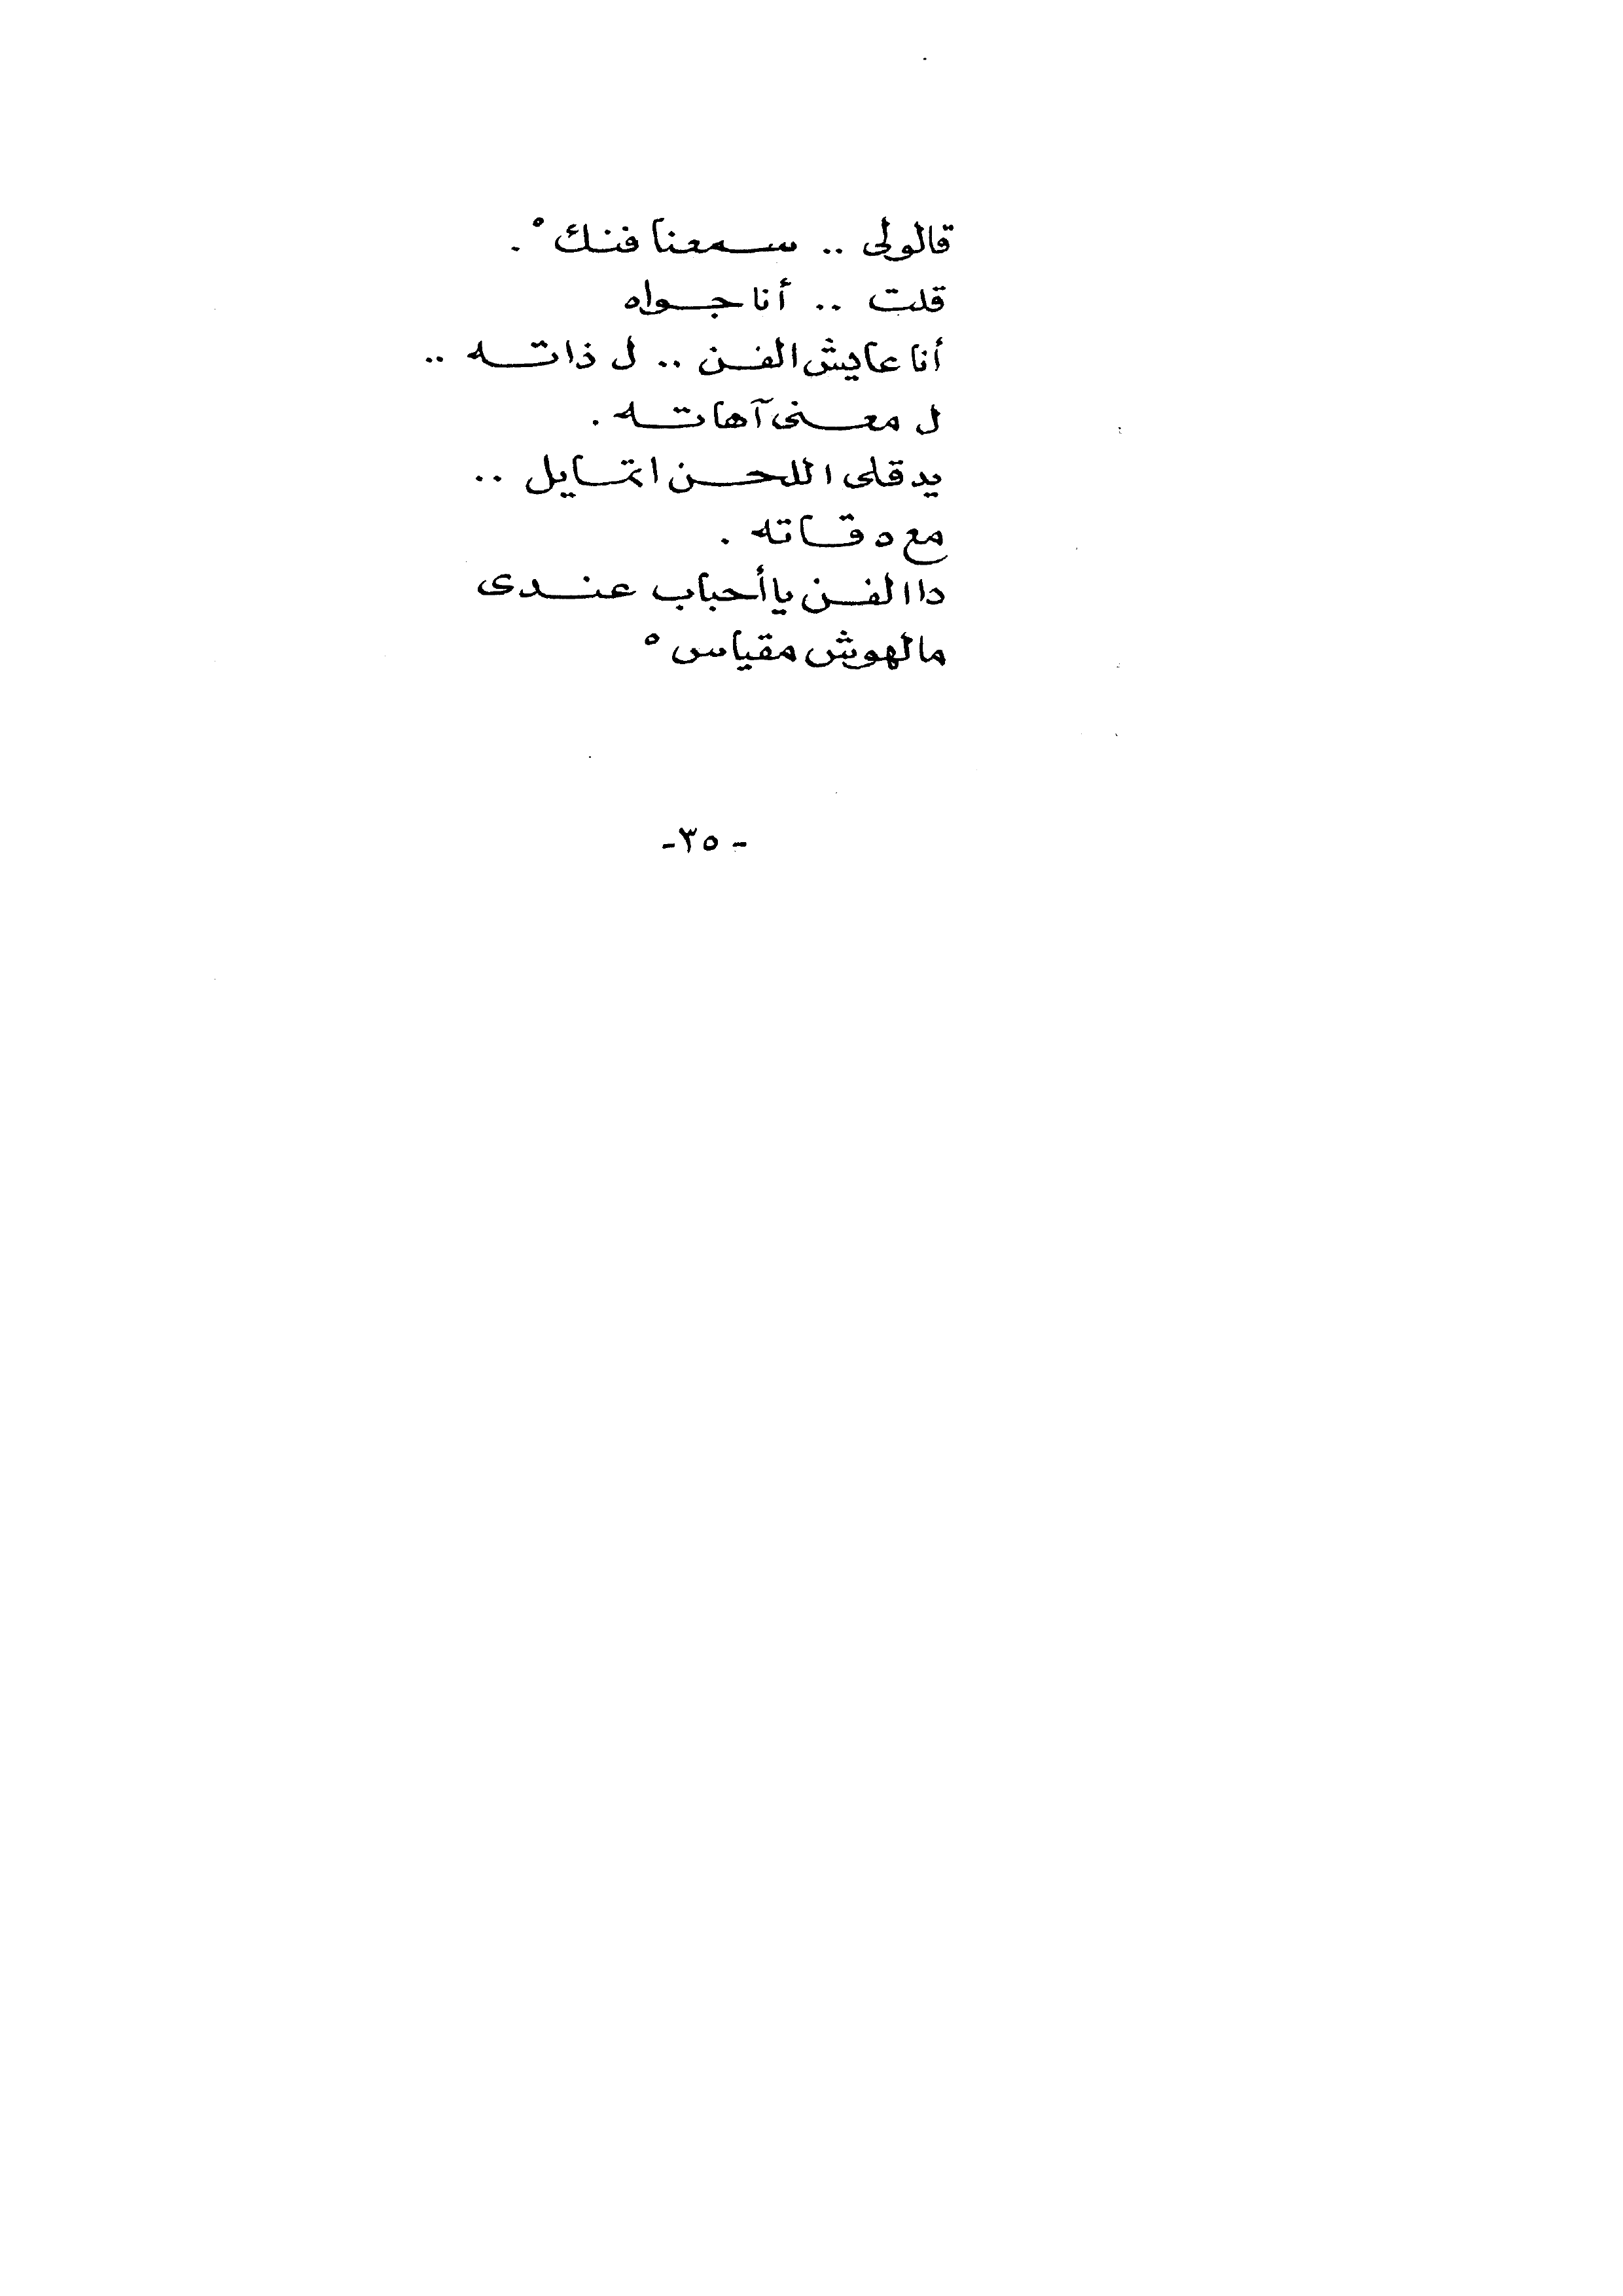 قالولى .. سمعنا فنك ْ.
قلت .. أنا جواه
أنا عايش الفن .. ل ذاته ..
ل معنى آهاته .
يدقلى اللحن اتمايل ..
مع دقاته .
دا الفن يا أحباب عندى
مالهوش مقياس ْ
- ٣٥ -